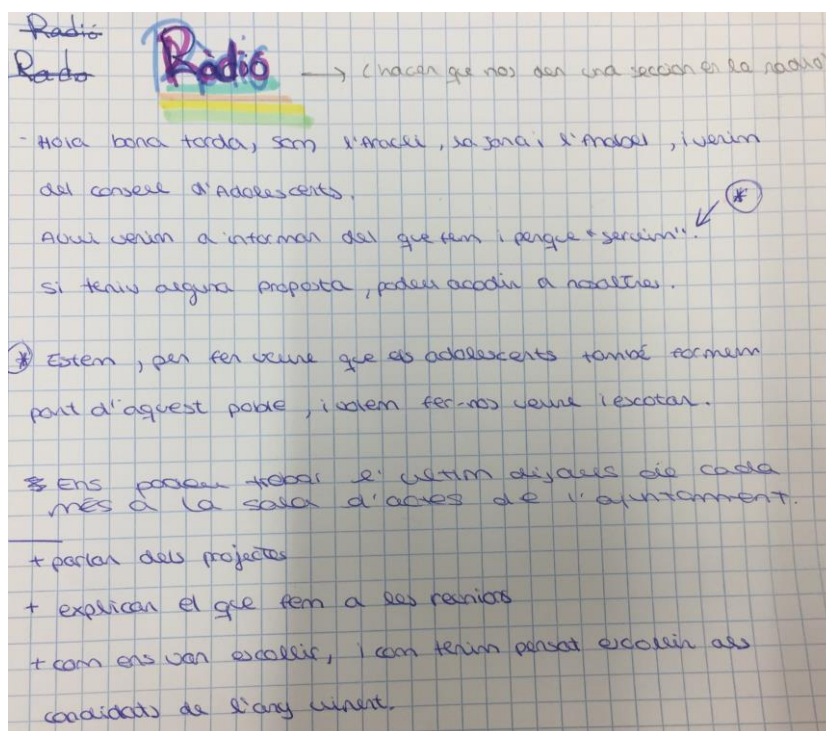 Radió
Rado
Ràdio → (hacer que nos den una sección en la radio)
- Hola bona tarda, som l'Araceli, la Jana i l'Anabel, i venim
del consell d'Adolescents.
Avui venim a informar del que fem i perque "servim". *
si teniu alguna proposta, podeu acodir a nosaltres.
* Estem, per fer veure que els adolescents també formem
part d'aquest poble, i volem fer-nos veure i escotar.
Ens podeu trobar l'ultim dijous de cada
més a la sala d'actes de l'ajuntamment.
+ parlar dels projectes
+ explicar el que fem a les reunions
+ com ens van escollir, i com tenim pensat escollir als
candidats de l'any vinent.